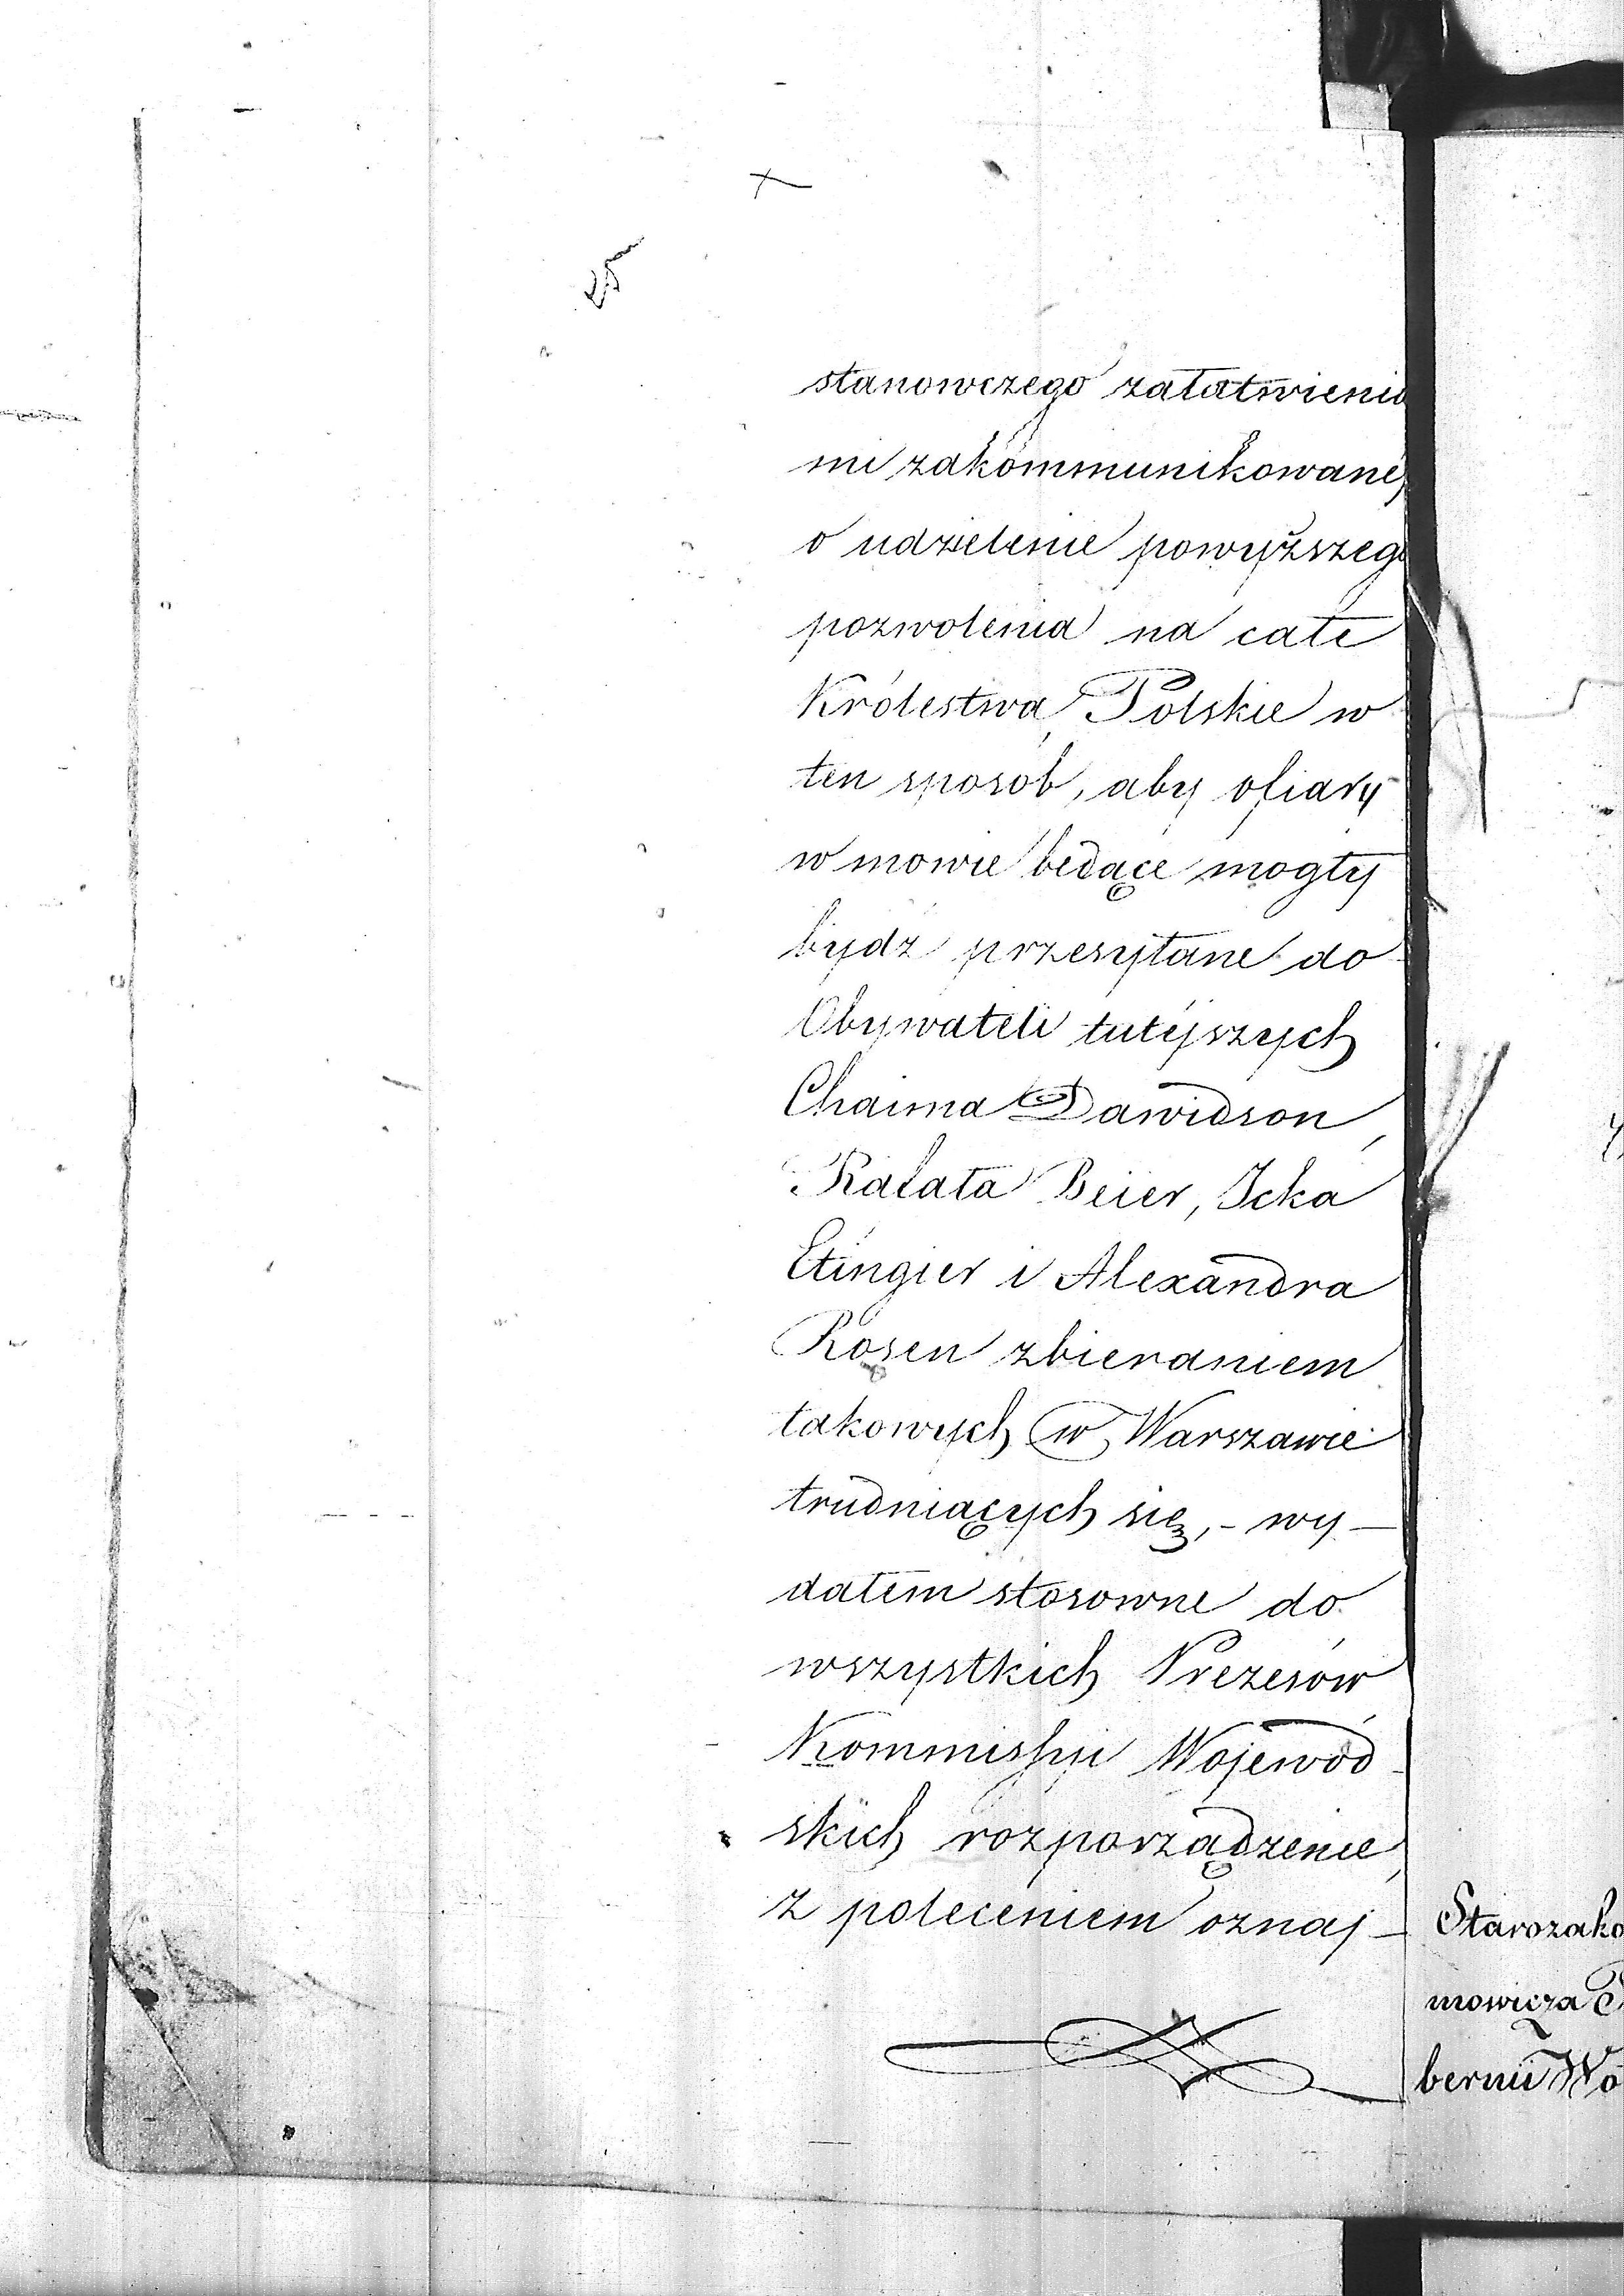 25
stanowczego załatwienia
mi zakommunikowanéj
o udzielenie powyższego
pozwolenia na całe
Królestwa Polskie w
ten sposób, aby ofiary
w mowie bedące mogły
bydź przesyłane do
Obywateli tutéjszych
Chaima Dawidson,
Rafała Beier, Icka
Etingier i Alexandra
Rosen zbieraniem
takowych w Warszawie
trudniących się, - wy-
dałem stosowne do
wszystkich Prezesów
Kommissyi Wojewód-
skich rozporządzenie,
z poleceniem oznaj-
Starozako
mowicza
bernii Wo